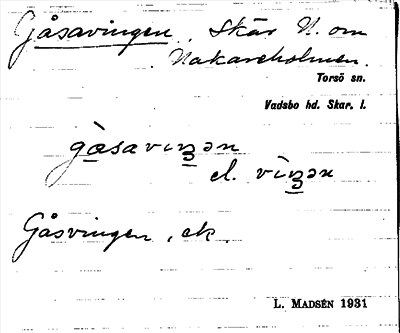 Gåsavingen, Skär N. om
Nakareholmen.
Torsö sn.
Vadsbo hd. Skar. l.
gå̀savıŋən
el. vìŋən
Gåsvingen, ek.
L. MADSÉN 1931